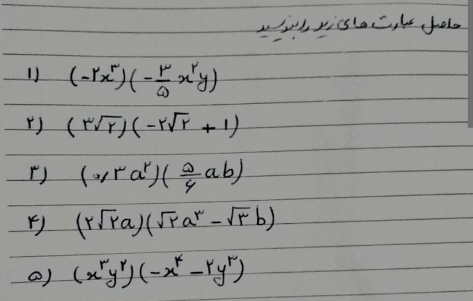 حاصل عبارت های زیر را بنویسید
۱) (-۲x³)(-۳/۵ x²y)
۲) (۳√۲)(-۲√۲ + ۱)
۳) (۰٫۳a²)(۵/۶ ab)
۴) (۲√۲a)(√۲a³ - √۳b)
۵) (x³y²)(-x⁴ - ۲y³)